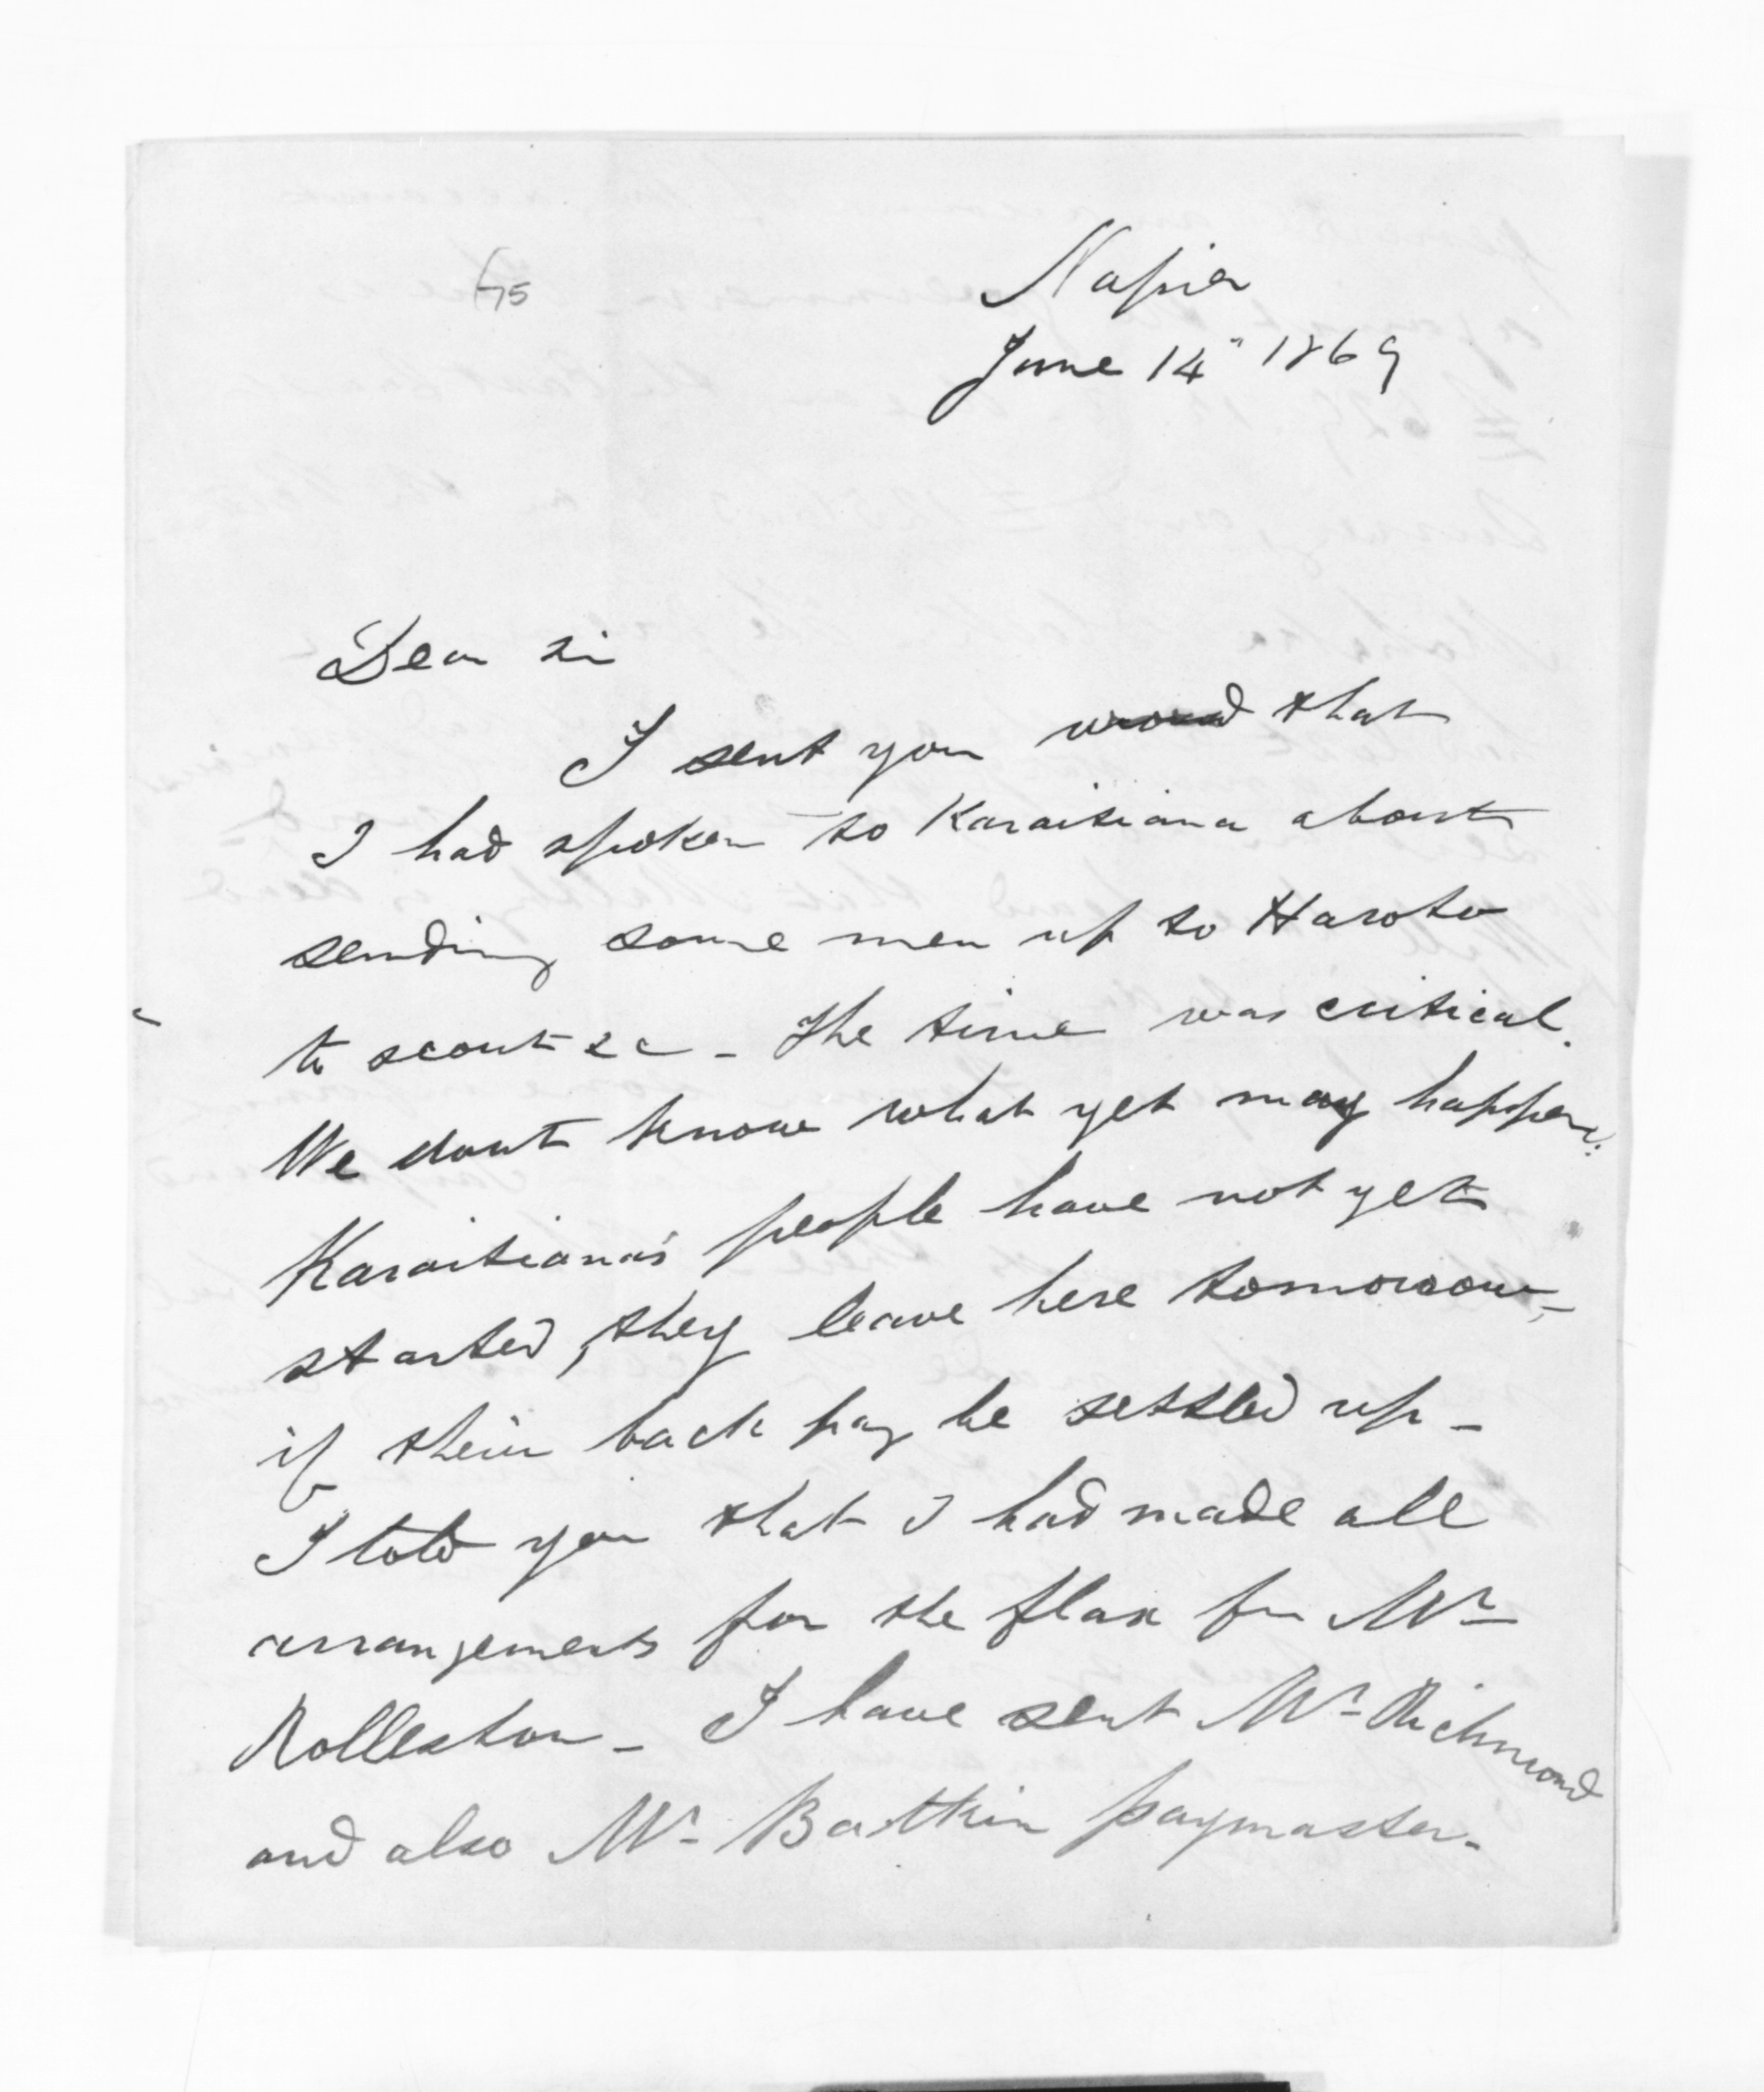 75
Napier
June 14" 1869
Dear Sir
I sent you word that
I had spoken to Karaitiana about
sending some men up to Haroto
to scout &c - The time was critical.
We dont know what yet may happen.
Karaitiana's people have not yet
started, they leave here tomorrow,
if their back pay be settled up -
I told you that I had made all
arrangements for the flax for Mr
Rolleston - I have sent Mr Richmond
and also Mr Batkin paymaster -